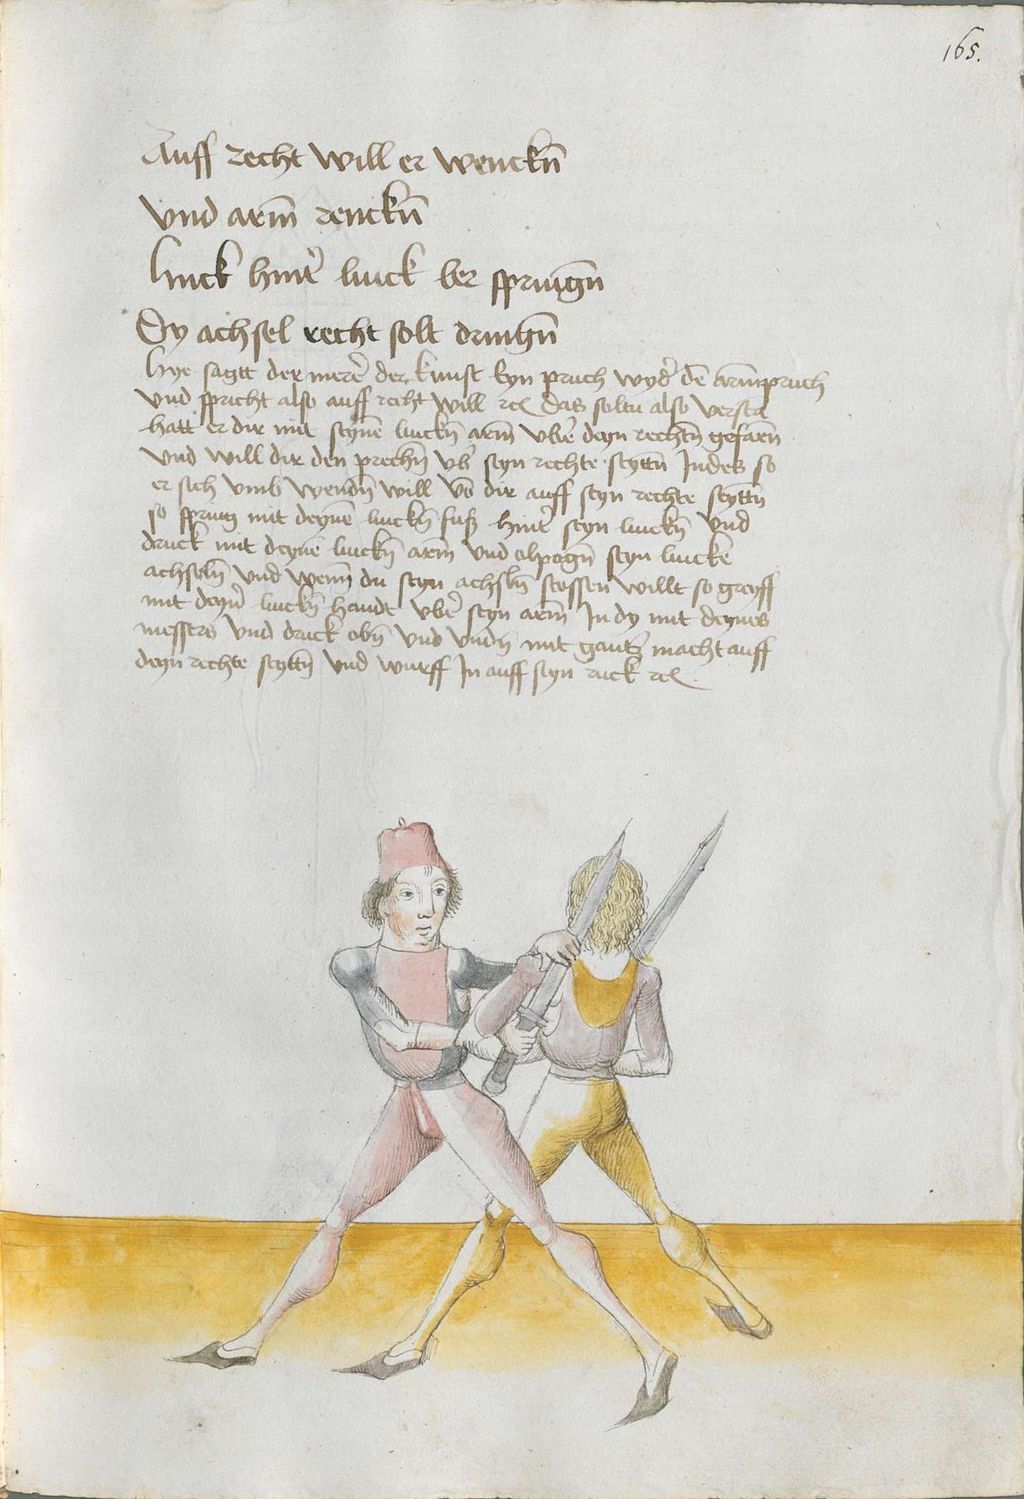 165.
Auff recht will er wenckn̄
vnd arm̄ renckn̄
Linck hint̓ linck ber sprīngn̄
Dy achsel recht solt dringn̄
Hye sagtt der mere̓ der kunst eyn pruch wyd̓ dē armpruch
vnd spricht also auff recht will ⁊c das soltu also verstā
hatt er dir mit seynē linckn̄ arm̄ vbe̓ deyn rechtn̄ gefarn̄
vnd will dir den prechn̄ vb̓ seyn rechte seyttn̄ Jndes so
er sich vmb wendn̄ will vō dir auff seyn rechte seyttn̄
so spring mit deynē linckn̄ fuß hint̓ seyn linckn̄ vnd
druck mit deynē linckn̄ arm̄ vnd elpogn̄ seyn lincke
achseln̄ vnd wenn̄ du seyn achsln̄ stossen willt so greyff
mit deyn̓ linckn̄ handt vbe̓ seyn arm̄ Jn dy mit deynes
messers vnd druck obn̄ vnd vndn̄ mit gantz̓ macht auff
deyn rechte seyttn̄ vnd wurff Jn auff seyn ruck ⁊c